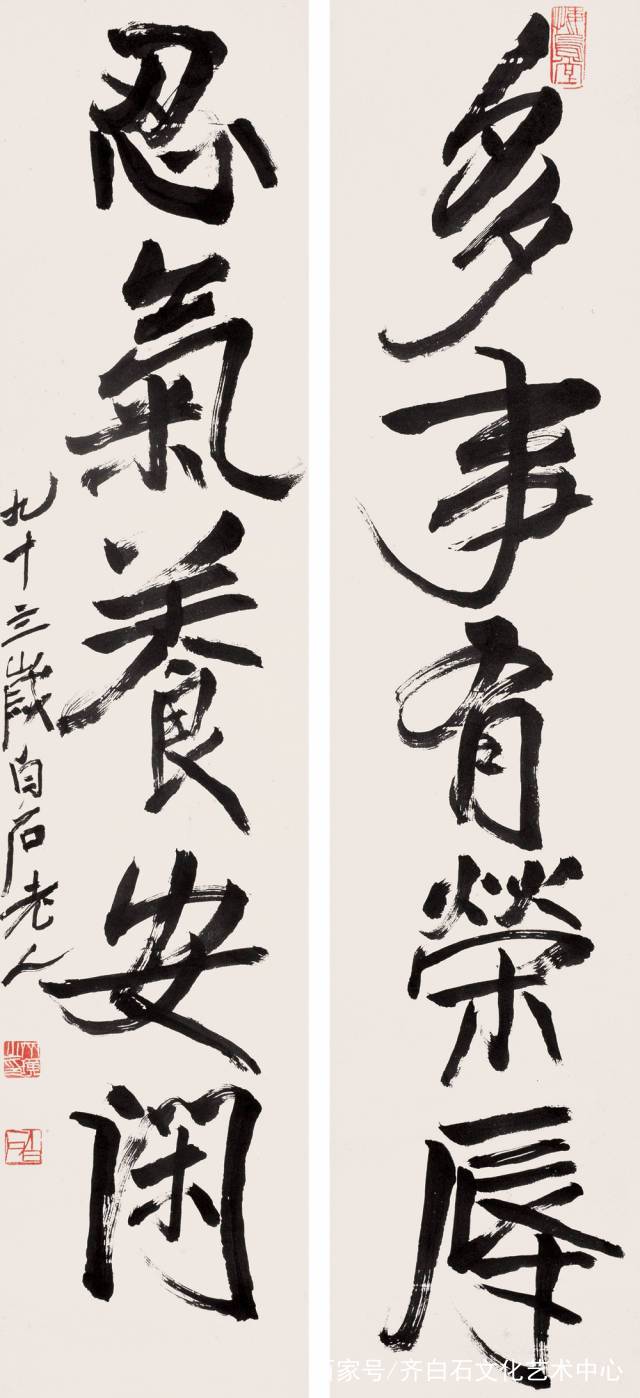 多事有榮辱
忍氣養安閑
九十三歲白石老人
百家号/齐白石文化艺术中心